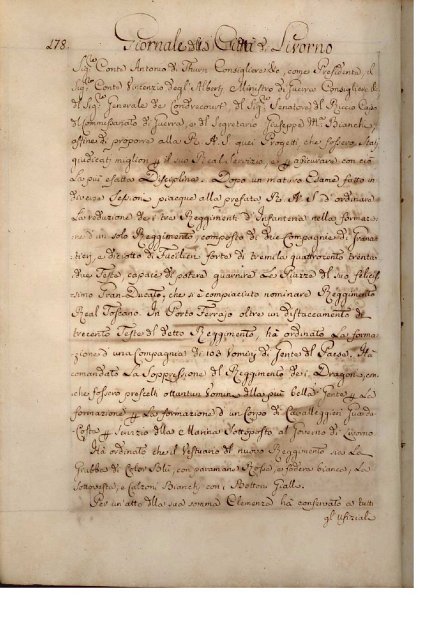 178. Giornale della Città di Livorno
Sig. Conte Antonio di Thurn Consigliere &c, come Presidente, il
Sig. Conte Vincenzo degl'Alberti Ministro di Guerra Consigliere &c
del Sig. Generale de Condrecourt, del Sig. Senatore del Riccio Capo
del Commissariato di Guerra, e del Segretario Giuseppe M.a Bianchi,
affine di proporre alla R. A. S. quei Progetti che fossero stati
giudicati migliori p il suo Real Servizio, e p assicurare con ciò
La più esatta Disciplina. Dopo un maturo Esame fatto in
diverse Sessioni piacque alla prefata R. A. S. d'ordinare
La reduzione dei tre Reggimenti d'Infanteria nella formazio-
ne d'un solo Reggimento, composto di due Compagnie di Grana-
tieri, e diciotto di Fucilieri forte di tremila quattrocento trenta-
due Teste capace di potere guarnire Le Piazze del suo felicis-
simo Gran-Ducato, che si è compiaciuto nominare Reggimento
Real Toscano. In Porto Ferrajo oltre un distaccamento di
trecento Teste del detto Reggimento, hà ordinato La forma-
zione d'una Compagnia di 103 Uomini di Gente del Paese. Hà
comandato La Soppressione del Reggimento dei Dragoni, on-
che fossero prescelti ottantun Uomini della più bella Gente p La
formazione p La formazione d'un Corpo di Cavalleggieri Guarda
Coste p Servizio della Marina Sottoposto al Governo di Livorno
Hà ordinato che il Vestuario del nuovo Reggimento sia La
Giubba di Color Blù, con paramani Rossi, e fodera bianca, La
Sottoveste, e Calzoni Bianchi con i Bottoni Gialli.
Per un'atto della sua somma Clemenza hà conservato a tutti
gl'Ufiziali